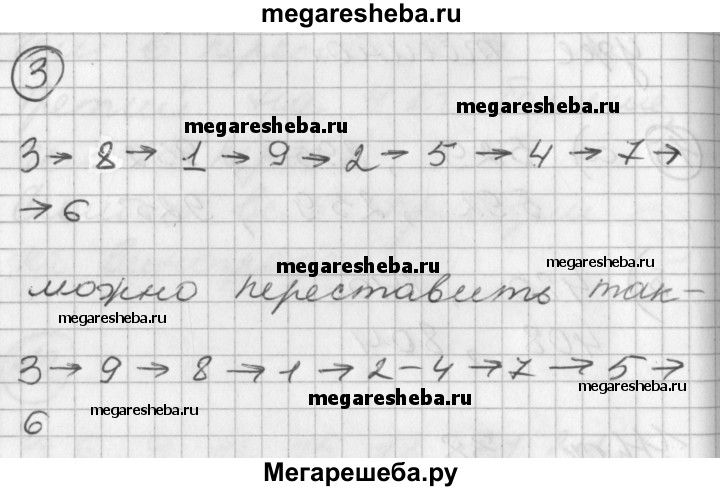 megaresheba.ru
3
megaresheba.ru
megaresheba.ru
3 → 8 → 1 → 9 → 2 → 5 → 4 → 7 →
→ 6
megaresheba.ru
megaresheba.ru
можно переставить так-
megaresheba.ru
3 → 9 → 8 → 1 → 2 - 4 → 7 → 5 →
megaresheba.ru
megaresheba.ru
megaresheba.ru
6
Мегарешеба.ру